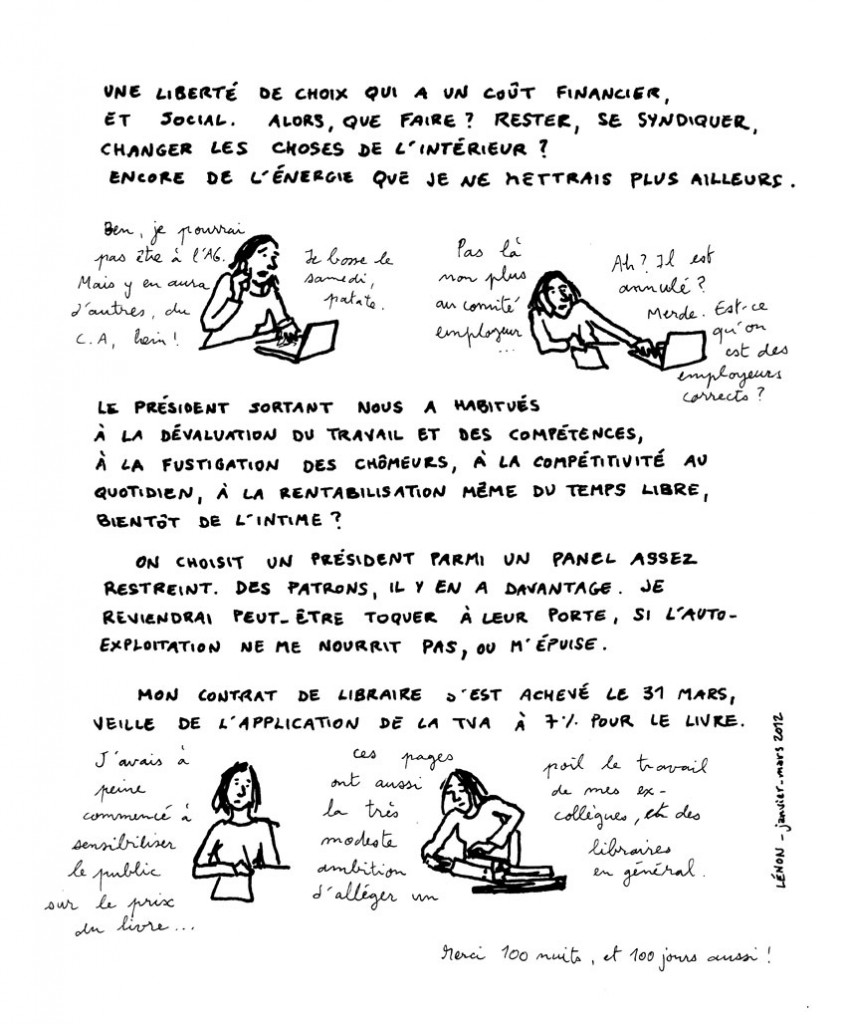 UNE LIBERTÉ DE CHOIX QUI A UN COÛT FINANCIER,
ET SOCIAL. ALORS, QUE FAIRE ? RESTER, SE SYNDIQUER,
CHANGER LES CHOSES DE L'INTÉRIEUR ?
ENCORE DE L'ÉNERGIE QUE JE NE METTRAIS PLUS AILLEURS.
Ben, je pourrai
pas être à l'AG.
Mais y en aura
d'autres, du
C.A, hein !
Je bosse le
samedi,
patate.
Pas là
non plus
au comité
employeur
...
Ah ? Il est
annulé ?
Merde. Est-ce
qu'on
est des
employeurs
corrects ?
LE PRÉSIDENT SORTANT NOUS A HABITUÉS
À LA DÉVALUATION DU TRAVAIL ET DES COMPÉTENCES,
À LA FUSTIGATION DES CHÔMEURS, À LA COMPÉTITIVITÉ AU
QUOTIDIEN, À LA RENTABILISATION MÊME DU TEMPS LIBRE,
BIENTÔT DE L'INTIME ?
ON CHOISIT UN PRÉSIDENT PARMI UN PANEL ASSEZ
RESTREINT. DES PATRONS, IL Y EN A DAVANTAGE. JE
REVIENDRAI PEUT-ÊTRE TOQUER À LEUR PORTE, SI L'AUTO-
EXPLOITATION NE ME NOURRIT PAS, OU M'ÉPUISE.
MON CONTRAT DE LIBRAIRE S'EST ACHEVÉ LE 31 MARS,
VEILLE DE L'APPLICATION DE LA TVA À 7% POUR LE LIVRE.
J'avais à
peine
commencé à
sensibiliser
le public
sur le prix
du livre...
ces pages
ont aussi
la très
modeste
ambition
d'alléger un
poil le travail
de mes ex-
collègues, et des
libraires
en général.
LÉNON - janvier-mars 2012
Merci 100 nuits, et 100 jours aussi !